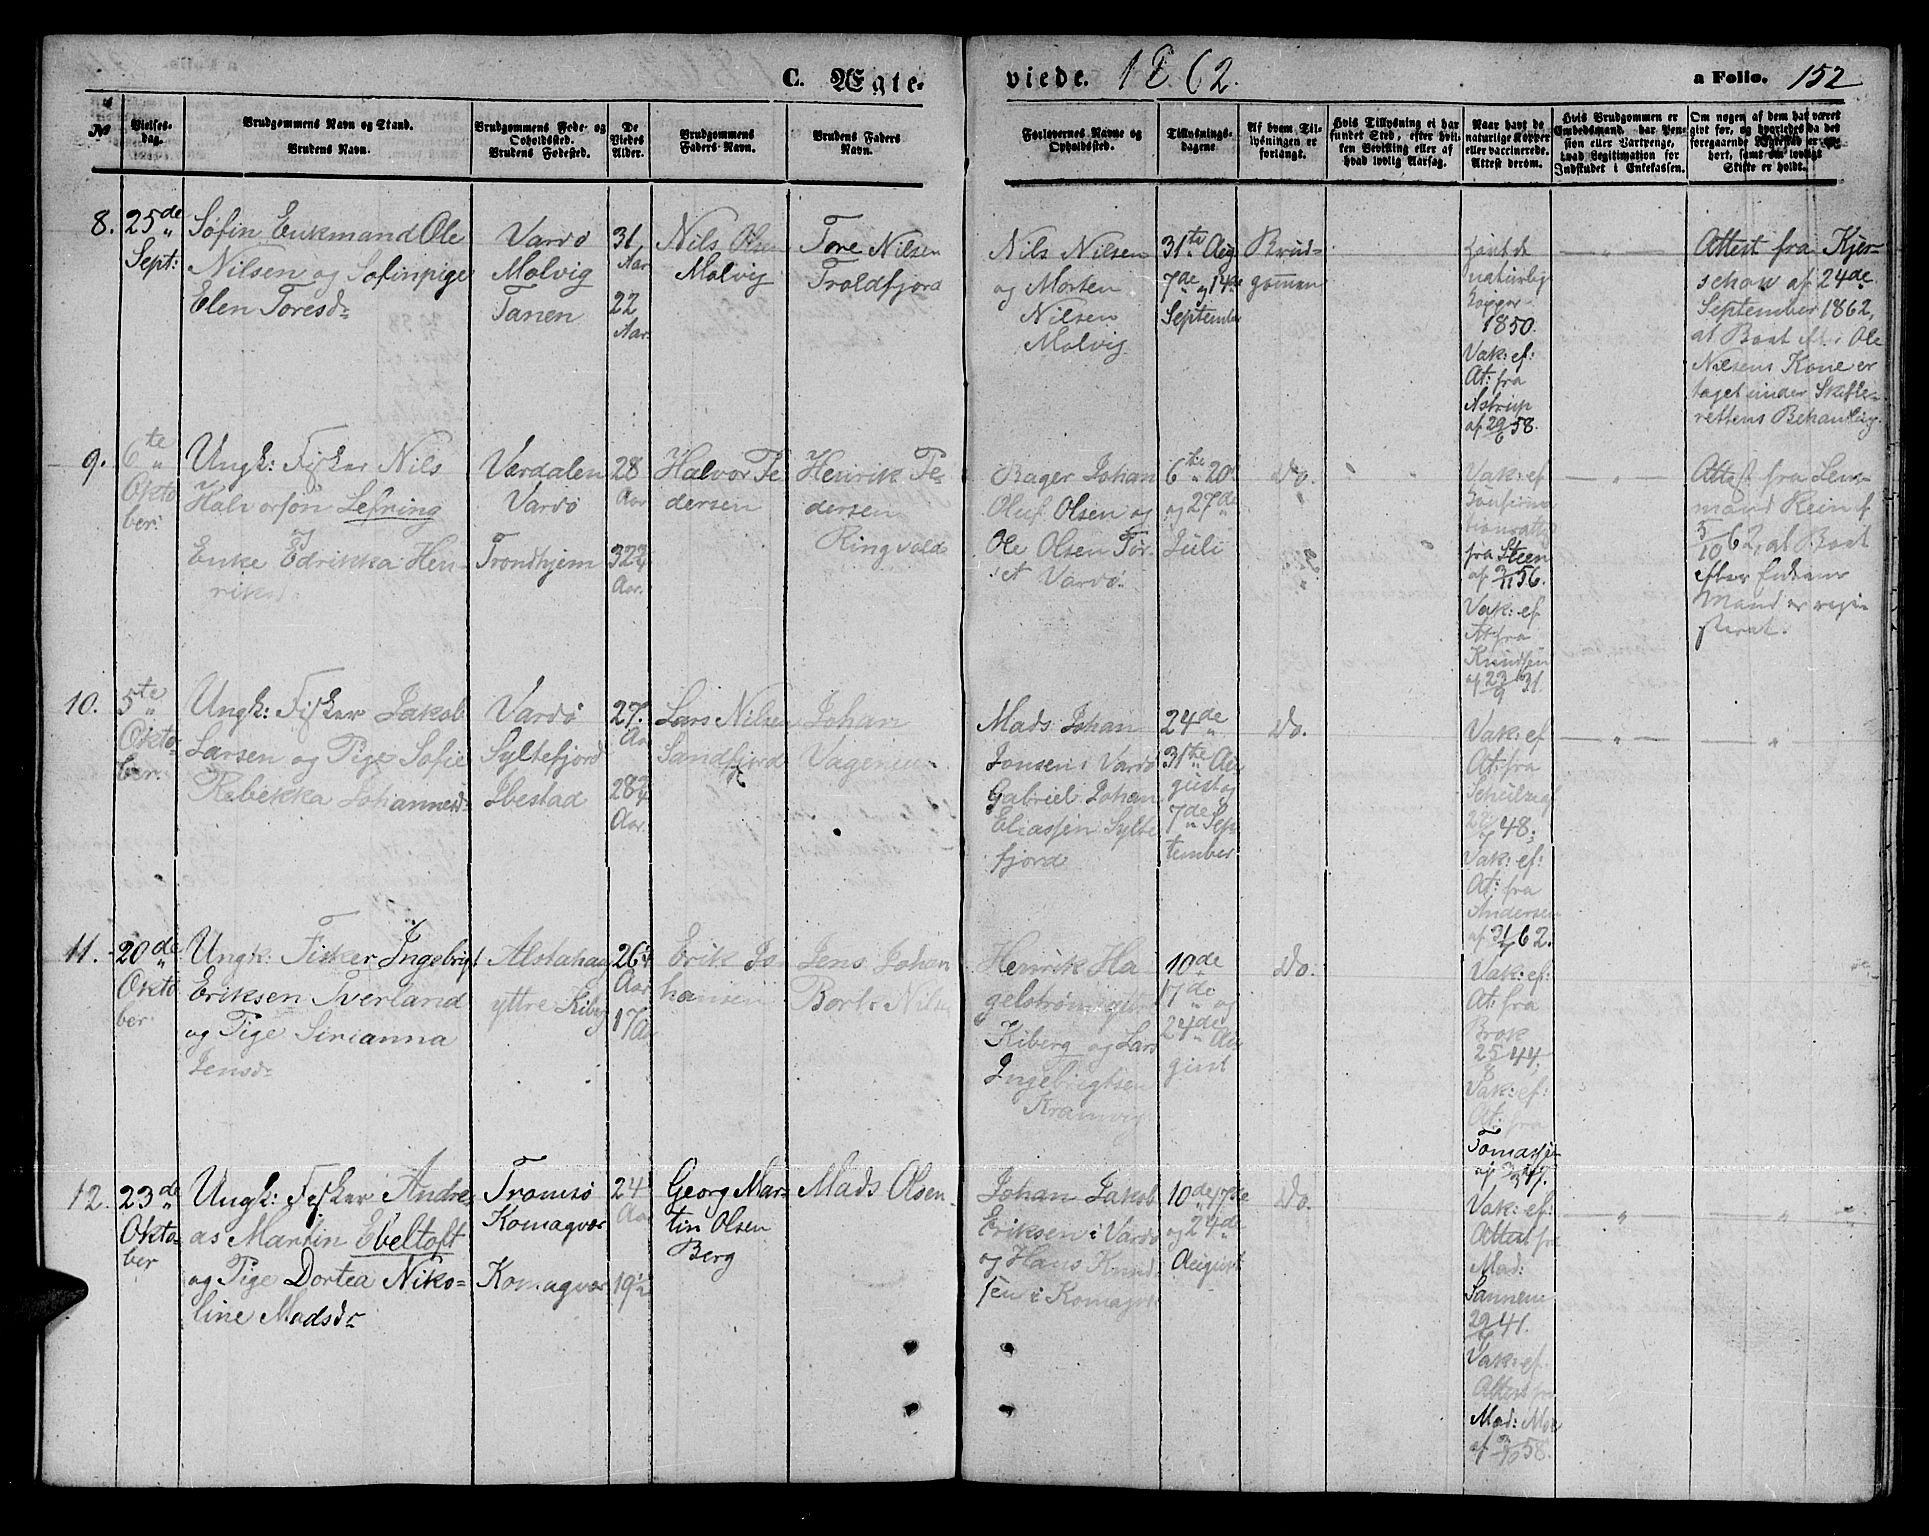 C. Ægte-
viede. 1862.
a Folio. 152
№
Vielses-
dag.
Brudgommens Navn og Stand.
Brudens Navn.
Brudgommens Føde- og
Opholdssted.
Brudens Fødested.
De
Viedes
Alder.
Brudgommens
Faders Navn.
Brudens Faders
Navn.
Forlovernes Navne og
Opholdssted.
Tillysnings-
dagene
Af hvem Til-
lysningen er
forlangt.
Hvis Tillysning ei har
fundet Sted, efter hvil-
ken Bevilling eller af
hvad lovlig Aarsag.
Naar havt de
naturlige Kopper
eller vaccinerede.
Attest derom.
Hvis Brudgommen er
Embedsmand, har Pen-
sion eller Vartpenge,
hvad Legitimation for
Indskudet i Enkekassen.
Om nogen af dem har været
gift før, og hvorledes da det
foregaaende Ægteskab er op-
hørt, samt om lovligt
Skifte er holdt.
8.
25de
Sept:
Søfin Enkmand Ole
Nilsen og Søfinpige
Elen Toresdr
Vardø
Molvig
Tanen
31
Aar
22
Aar.
Nils Olsen
Molvig
Tore Nilsen
Troldfjord
Nils Nilsen
og Morten
Nilsen
Molvig
31te Aug
7de og 14de
September
Brud-
gomen
havt de
naturlig
Kopper
1850.
Vak: ef:
At: fra
Astrup
af 29/6 58.
"
Attest fra Kjer-
schow af 24de
September 1862,
at Boet efter Ole
Nilsens Kone er
taget under Skifte-
rettens Behanling.
9.
6te
Okto
ber.
Ungk: Fisker Nils
Halvorsøn Lefring
og
Enke Edrikka Hen-
riksd.
Værdalen
Vardø
Trondhjem
28
Aar
32¾
Aar.
Halvor Pe
dersen
Henrik Pe-
dersen
Ringvold
Bager Johan
Oluf Olsen og
Ole Olsen Tør-
set Vardø.
6te 20de
og 27de
Juli
Do.
Vak: ef
Konfirma
tionsattest
fra Steen
af 3/11 56.
Vak: ef
At: fra
Knudsen
af 23/9 31.
"
Attest fra Lens-
mand Rein af
5/10 62, at Boet
efter Enkens
Mand er regi-
streret.
10.
5te
Okto-
ber.
Ungk: Fisker Jakob
Larsen og Pige Sofie
Rebekka Johannesd:
Vardø
Syltefjord
Ibestad
27.
Aar
28¾
Aar.
Lars Nilsen
Sandfjord
Johan
Vagenius
Mads Johan
Jonsen i Vardø
Gabriel Johan
Eliassen Sylte
fjord
24de
31te Au
gust og
7de Sep
tember.
Do.
Vak: ef
At: fra
Schulze af
48;
Vak: ef:
At: fra
Andersen
62.
"
"
11.
20de
Okto
ber.
Ungk: Fisker Ingebrigt
Eriksen Tverland
og Pige Sirianna
Jensdr
Alstahaug
yttre Kiberg
26
Aar
17 Aar
Erik Jo-
hansen
Jens Johan
Bort: Nilsen
Henrik Ha
gelstrøm yttre
Kiberg og Lars
Ingebrigtsen
Kramvig
10de
17de og
24de Au
gust
Do.
Vak: ef:
At: fra
Brok
25/8 44.
Vak: ef:
At: fra
Tomassen
af 47.
12.
23de
Okto-
ber
Ungk: Fisker Andre-
as Martin Ebeltoft
og Pige Dortea Niko-
line Madsdr
Tromsø
Komagvær
Komagvær
24
Aar
19½
Georg Mar-
tin Olsen
Berg
Mads Olsen
Johan Jakob
Eriksen i Vardø
og Hans Knud-
sen i Komagvær
10de 17de
og 24de
August
Do.
Vak: ef:
Attest fra
Mad:
Sannem
41.
Vak: ef.
Attest fra
Mad: Moe
af 58.
"
"